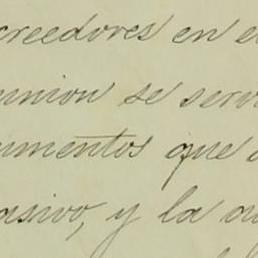 creedores en e
union se serv
umentos que
asivo, y la a